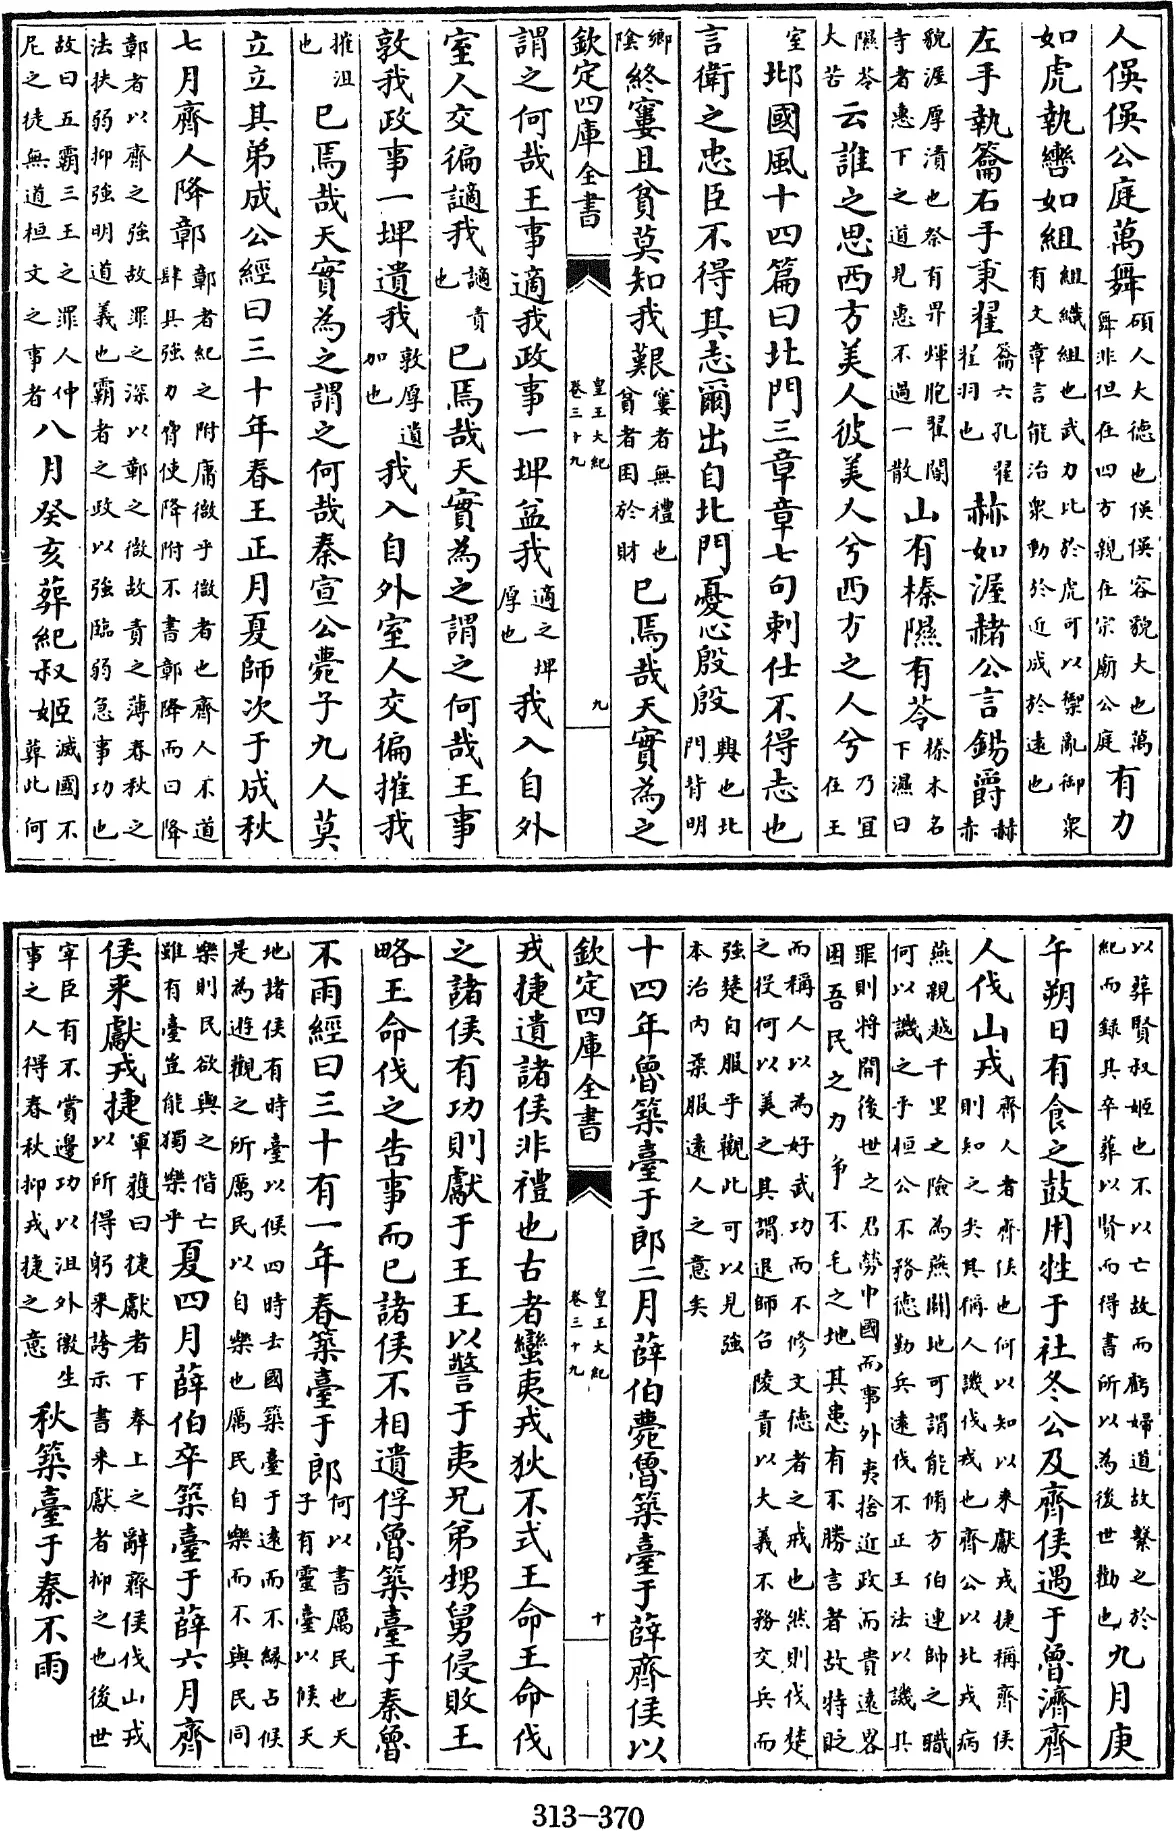 人俁俁公庭萬舞碩人大德也俁俁容貌大也萬舞非但在四方親在宗廟公庭有力
如虎執轡如組組織組也武力比於虎可以禦亂御衆有文章言能治衆動於近成於遠也
左手執籥右手秉翟籥六孔翟翟羽也赫如渥赭公言錫爵赫赤
貌渥厚漬也祭有畀煇胞翟閽寺者惠下之道見惠不過一散山有榛隰有苓榛木名下濕曰
隰苓大苦云誰之思西方美人彼美人兮西方之人兮乃宜在王
室邶國風十四篇曰北門三章章七句刺仕不得志也
言衛之忠臣不得其志爾出自北門憂心殷殷興也北門背明
鄉陰終窶且貧莫知我艱窶者無禮也貧者困於財已焉哉天實為之
欽定四庫全書 皇王大紀卷三十九 九
謂之何哉王事適我政事一埤益我適之埤厚也我入自外
室人交徧讁我讁責也已焉哉天實為之謂之何哉王事
敦我政事一埤遺我敦厚遺加也我入自外室人交徧摧我
摧沮也已焉哉天實為之謂之何哉秦宣公薨子九人莫
立立其弟成公經曰三十年春王正月夏師次于成秋
七月齊人降鄣鄣者紀之附庸微乎微者也齊人不道肆其強力脅使降附不書鄣降而曰降
鄣者以齊之強故罪之深以鄣之微故責之薄春秋之法扶弱抑強明道義也霸者之政以強臨弱急事功也
故曰五霸三王之罪人仲尼之徒無道桓文之事者八月癸亥葬紀叔姬滅國不葬此何
以葬賢叔姬也不以亡故而虧婦道故繫之於紀而録其卒葬以賢而得書所以為後世勸也九月庚
午朔日有食之鼓用牲于社冬公及齊侯遇于魯濟齊
人伐山戎齊人者齊侯也何以知以來獻戎捷稱齊侯則知之矣其稱人譏伐戎也齊公以北戎病
燕親越千里之險為燕闢地可謂能脩方伯連帥之職何以譏之乎桓公不務德勤兵遠伐不正王法以譏其
罪則將開後世之君勞中國而事外夷捨近政而貴遠畧困吾民之力爭不毛之地其患有不勝言者故特貶
而稱人以為好武功而不修文德者之戒也然則伐楚之役何以美之其謂退師召陵責以大義不務交兵而
強楚自服乎觀此可以見強本治内柔服遠人之意矣
十四年魯築臺于郎二月薛伯薨魯築臺于薛齊侯以
欽定四庫全書 皇王大紀卷三十九 十
戎捷遺諸侯非禮也古者蠻夷戎狄不式王命王命伐
之諸侯有功則獻于王王以警于夷兄弟甥舅侵敗王
略王命伐之告事而已諸侯不相遺俘魯築臺于秦魯
不雨經曰三十有一年春築臺于郎何以書厲民也天子有靈臺以候天
地諸侯有時臺以候四時去國築臺于遠而不緣占候是為遊觀之所厲民以自樂也厲民自樂而不與民同
樂則民欲與之偕亡雖有臺豈能獨樂乎夏四月薛伯卒築臺于薛六月齊
侯來獻戎捷軍獲曰捷獻者下奉上之辭齊侯伐山戎以所得躬來誇示書来獻者抑之也後世
宰臣有不賞邊功以沮外徼生事之人得春秋抑戎捷之意秋築臺于秦不雨
313-370